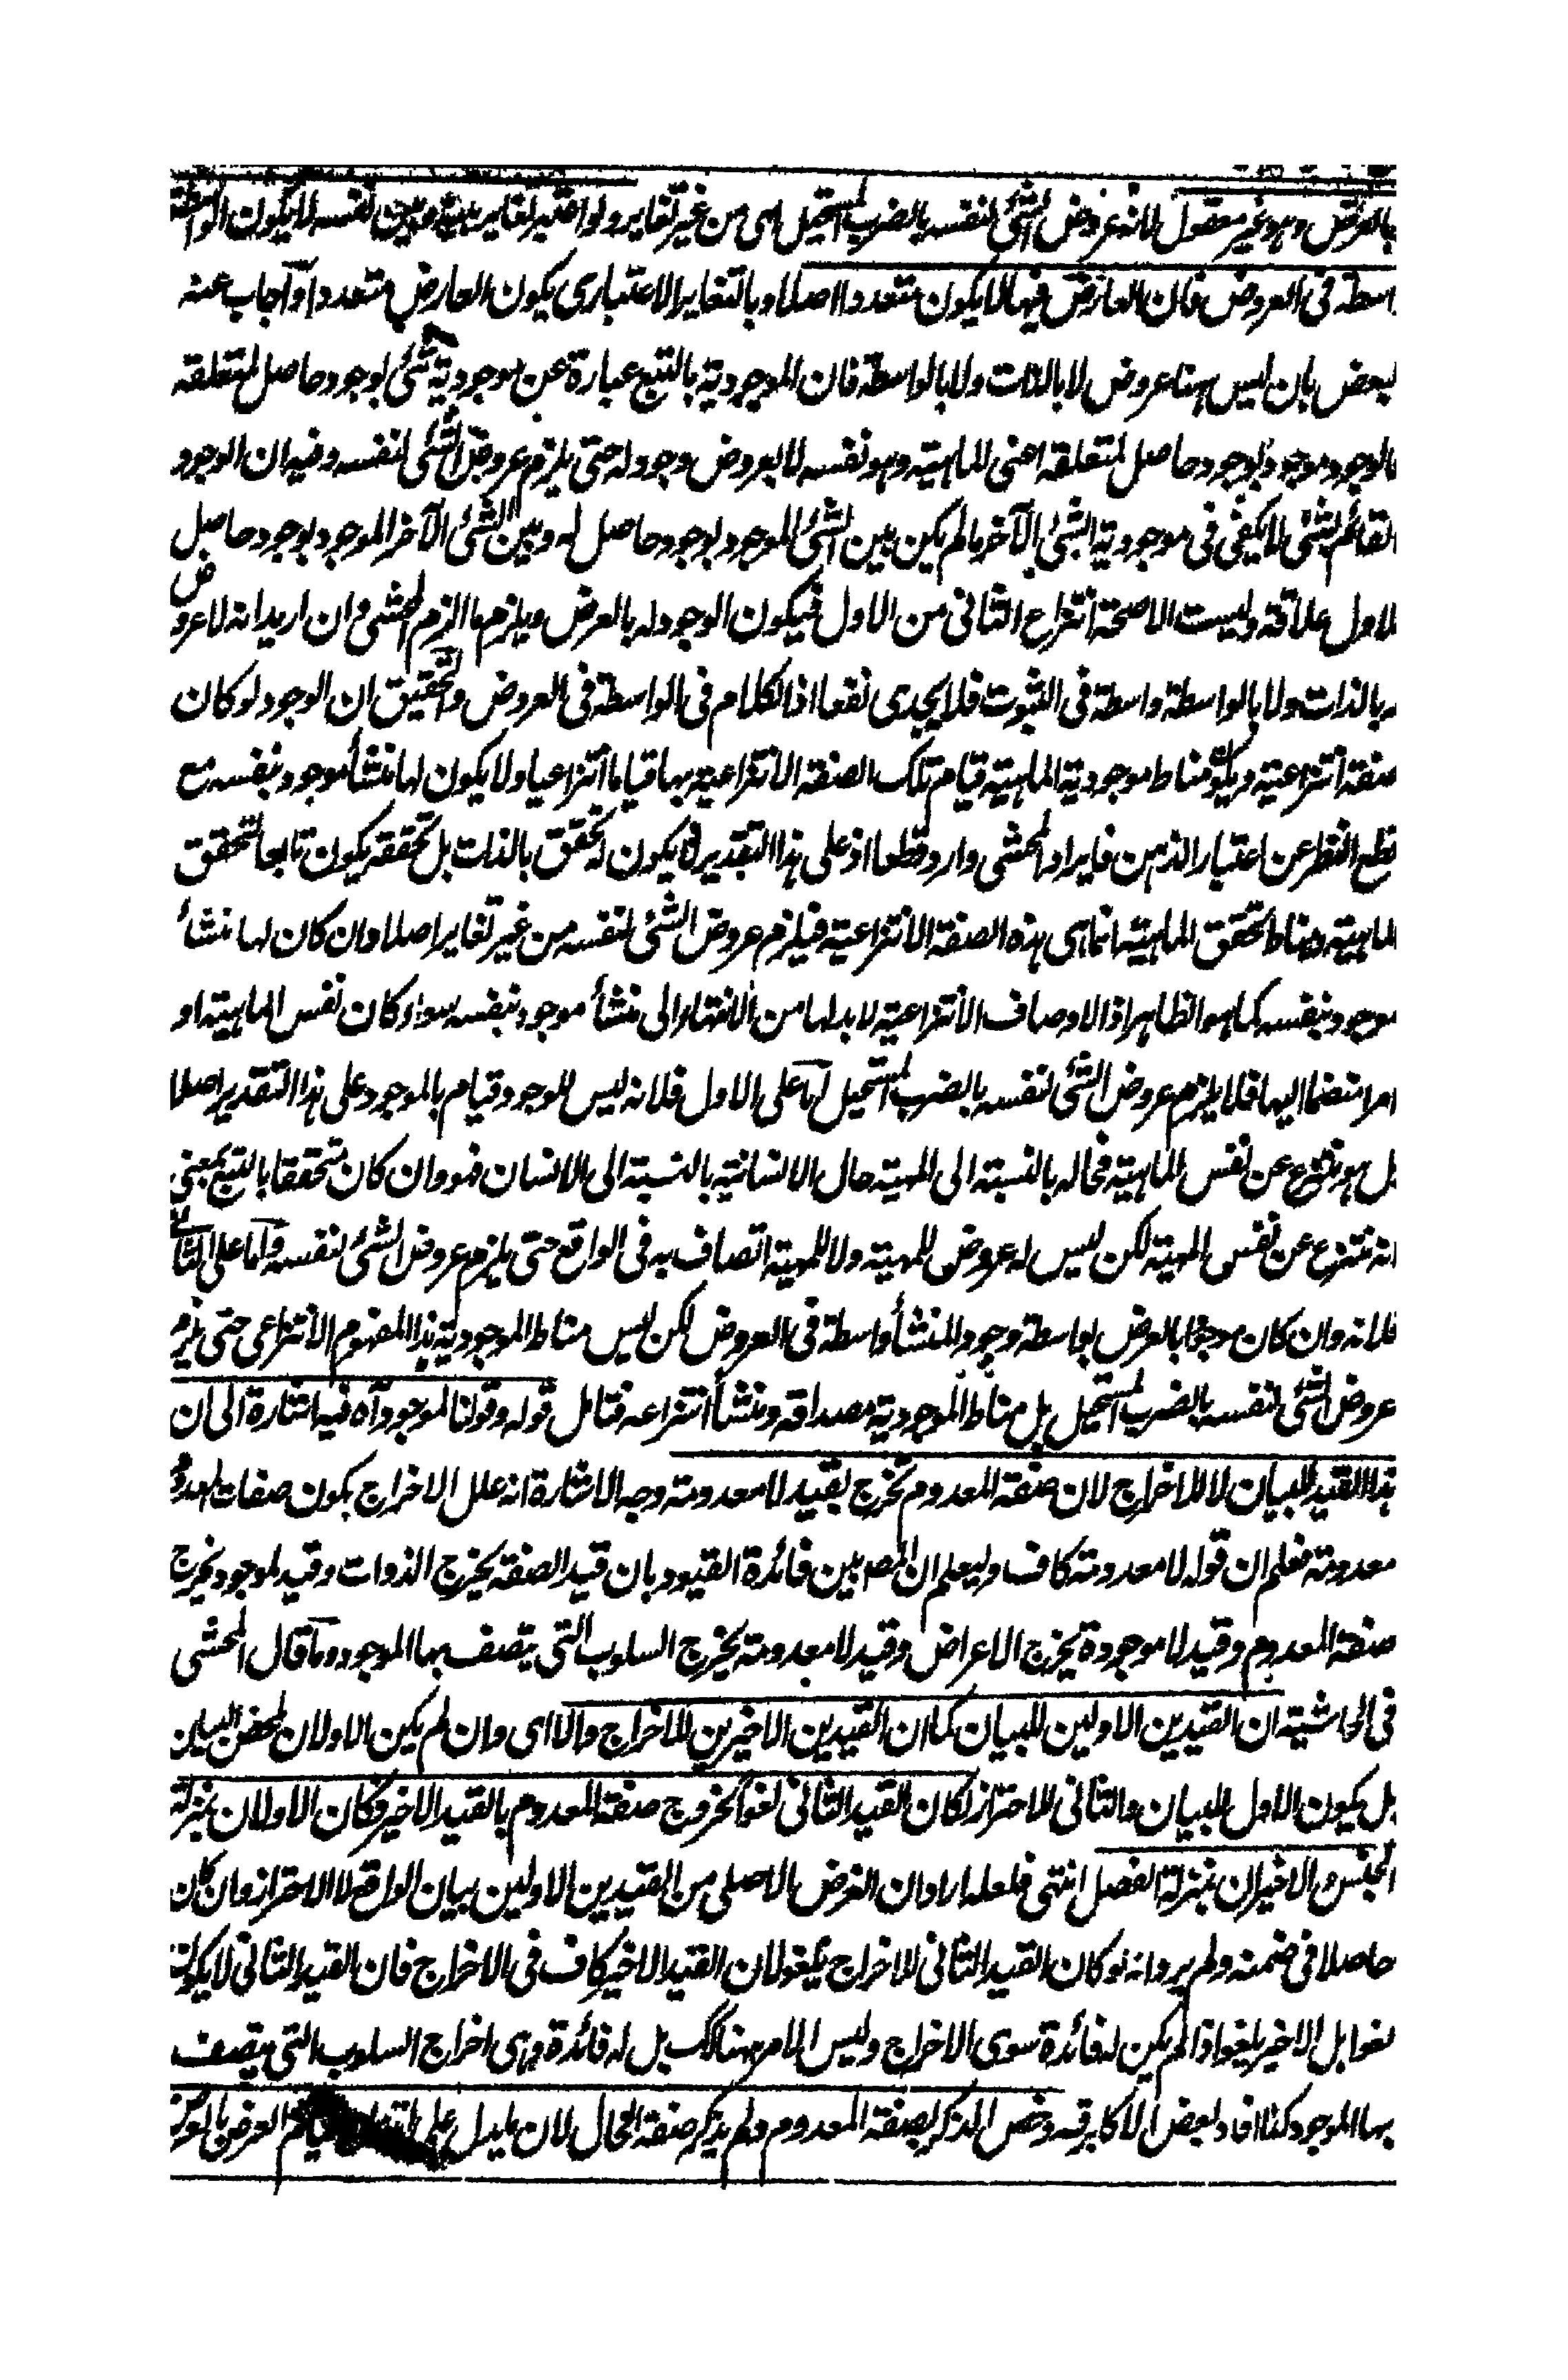 بالعرض وهو غير معقول لانه عروض الشئ لنفسه بالضرب المستحيل اى من غير تغاير ولو اعتبر تغاير بينه وبين نفسه لا يكون الواسطة
اسطة فى العروض فان العارض فيها لا يكون متعددا اصلا وبالتغاير الاعتبارى يكون العارض متعددا واجاب عنه
بعض بان ليس ههنا عروض لا بالذات ولا بالواسطة فان الموجودية بالتبع عبارة عن موجودية شئ بوجود حاصل لمتعلقه
الوجود موجود بوجود حاصل لمتعلقه اعنى للماهية وهو نفسه لا بعروض وجود له حتى يلزم عروض الشئ لنفسه وفيه ان الوجود
القائم بشئ لا يكفى فى موجودية الشئ الآخر ما لم يكن بين الشئ الموجود بوجود حاصل له وبين الشئ الآخر الموجود بوجود حاصل
للاول علاقة وليست الا صحة انتزاع الثانى من الاول فيكون الوجود له بالعرض ويلزم ما الزم المحشى وان اريد انه لا عروض
له بالذات ولا بالواسطة واسطة فى الثبوت فلا يجدى نفعا اذ الكلام فى الواسطة فى العروض والتحقيق ان الوجود لو كان
صفة انتزاعية ويكون مناط موجودية الماهية قيام تلك الصفة الانتزاعية بها قياما انتزاعيا ولا يكون لها منشأ موجود بنفسه مع
قطع النظر عن اعتبار الذهن فايراد المحشى وارد قطعا اذ على هذا التقدير لا يكون له تحقق بالذات بل تحققه يكون تابعا لتحقق
الماهية ومناط تحقق الماهية انما هى هذه الصفة الانتزاعية فيلزم عروض الشئ لنفسه من غير تغاير اصلا وان كان لها منشأ
موجود بنفسه كما هو الظاهر اذ الاوصاف الانتزاعية لا بد لها من الانتهاء الى منشأ موجود بنفسه سواء كان نفس الماهية او
امرا منضما اليها فلا يلزم عروض الشئ لنفسه بالضرب المستحيل اما على الاول فلانه ليس للوجود قيام بالموجود على هذا التقدير اصلا
بل هو منتزع عن نفس الماهية فحاله بالنسبة الى المهية حال الانسانية بالنسبة الى الانسان فهو وان كان متحققا بالتبع بمعنى
انه منتزع عن نفس المهية لكن ليس له عروض للمهية ولا للمهية اتصاف به فى الواقع حتى يلزم عروض الشئ لنفسه واما على الثانى
فلانه وان كان موجودا بالعرض بواسطة وجود المنشأ واسطة فى العروض لكن ليس مناط الموجودية هذا المفهوم الانتزاعى حتى يلزم
عروض الشئ لنفسه بالضرب المستحيل بل مناط الموجودية مصداقه ومنشأ انتزاعه فتامل قوله وقولنا لموجود آه فيه اشارة الى ان
هذا القيد للبيان لا للاخراج لان صفة المعدوم تخرج بقيد لا معدومة وجه الاشارة انه علل الاخراج بكون صفات المعدوم
معدومة فعلم ان قوله لا معدومة كاف وليعلم ان المصه بين فائدة القيود بان قيد الصفة يخرج الذوات وقيد لموجود يخرج
صفة المعدوم وقيد لا موجودة يخرج الاعراض وقيد لا معدومة يخرج السلوب التى يتصف بها الموجود وما قال المحشى
فى الحاشية ان القيدين الاولين للبيان كما ان القيدين الاخيرين للاخراج والا اى وان لم يكن الاولان لمحض البيان
بل يكون الاول للبيان والثانى للاحتراز لكان القيد الثانى لغوا لخروج صفة المعدوم بالقيد الاخير فكان الاولان بمنزلة
الجنس والاخيران بمنزلة الفصل انتهى فلعله اراد ان الغرض الاصلى من القيدين الاولين بيان الواقع لا الاحتراز وان كان
حاصلا فى ضمنه ولم يرد انه لو كان القيد الثانى للاخراج يلغو لان القيد الاخير كاف فى الاخراج فان القيد الثانى لا يكون
لغوا بل الاخير يلغو اذا لم يكن له فائدة سوى الاخراج وليس الامر ههنا كك بل له فائدة وهى اخراج السلوب التى يتصف
بها الموجود كذا افاد بعض الاكابر قه وخص الذكر بصفة المعدوم ولم يذكر صفة الحال لان يدل على قيام العرض بالعرض